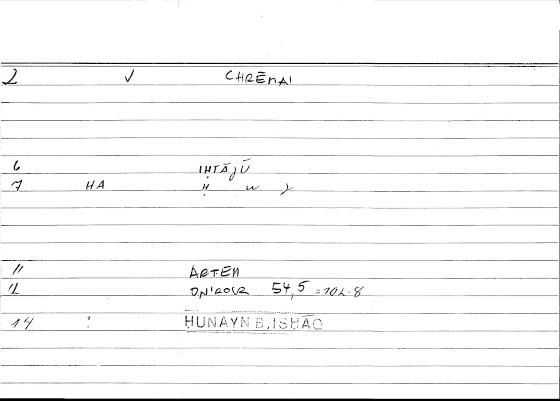 2 √ CHRĒMAI
6 IḤTĀJŪ
7 HA Ḥ W J
11 ARTEM
12 54,5 =102.8
14 ? ḤUNAYN B. ISḤĀQ